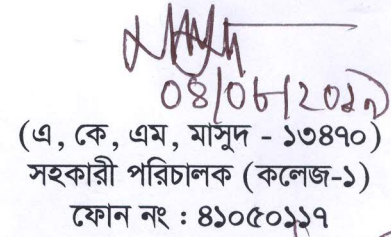 08/06/2017
(এ, কে, এম, মাসুদ - ১৩৪৭০)
সহকারী পরিচালক (কলেজ-১)
ফোন নং : ৪১০৫০১১৭